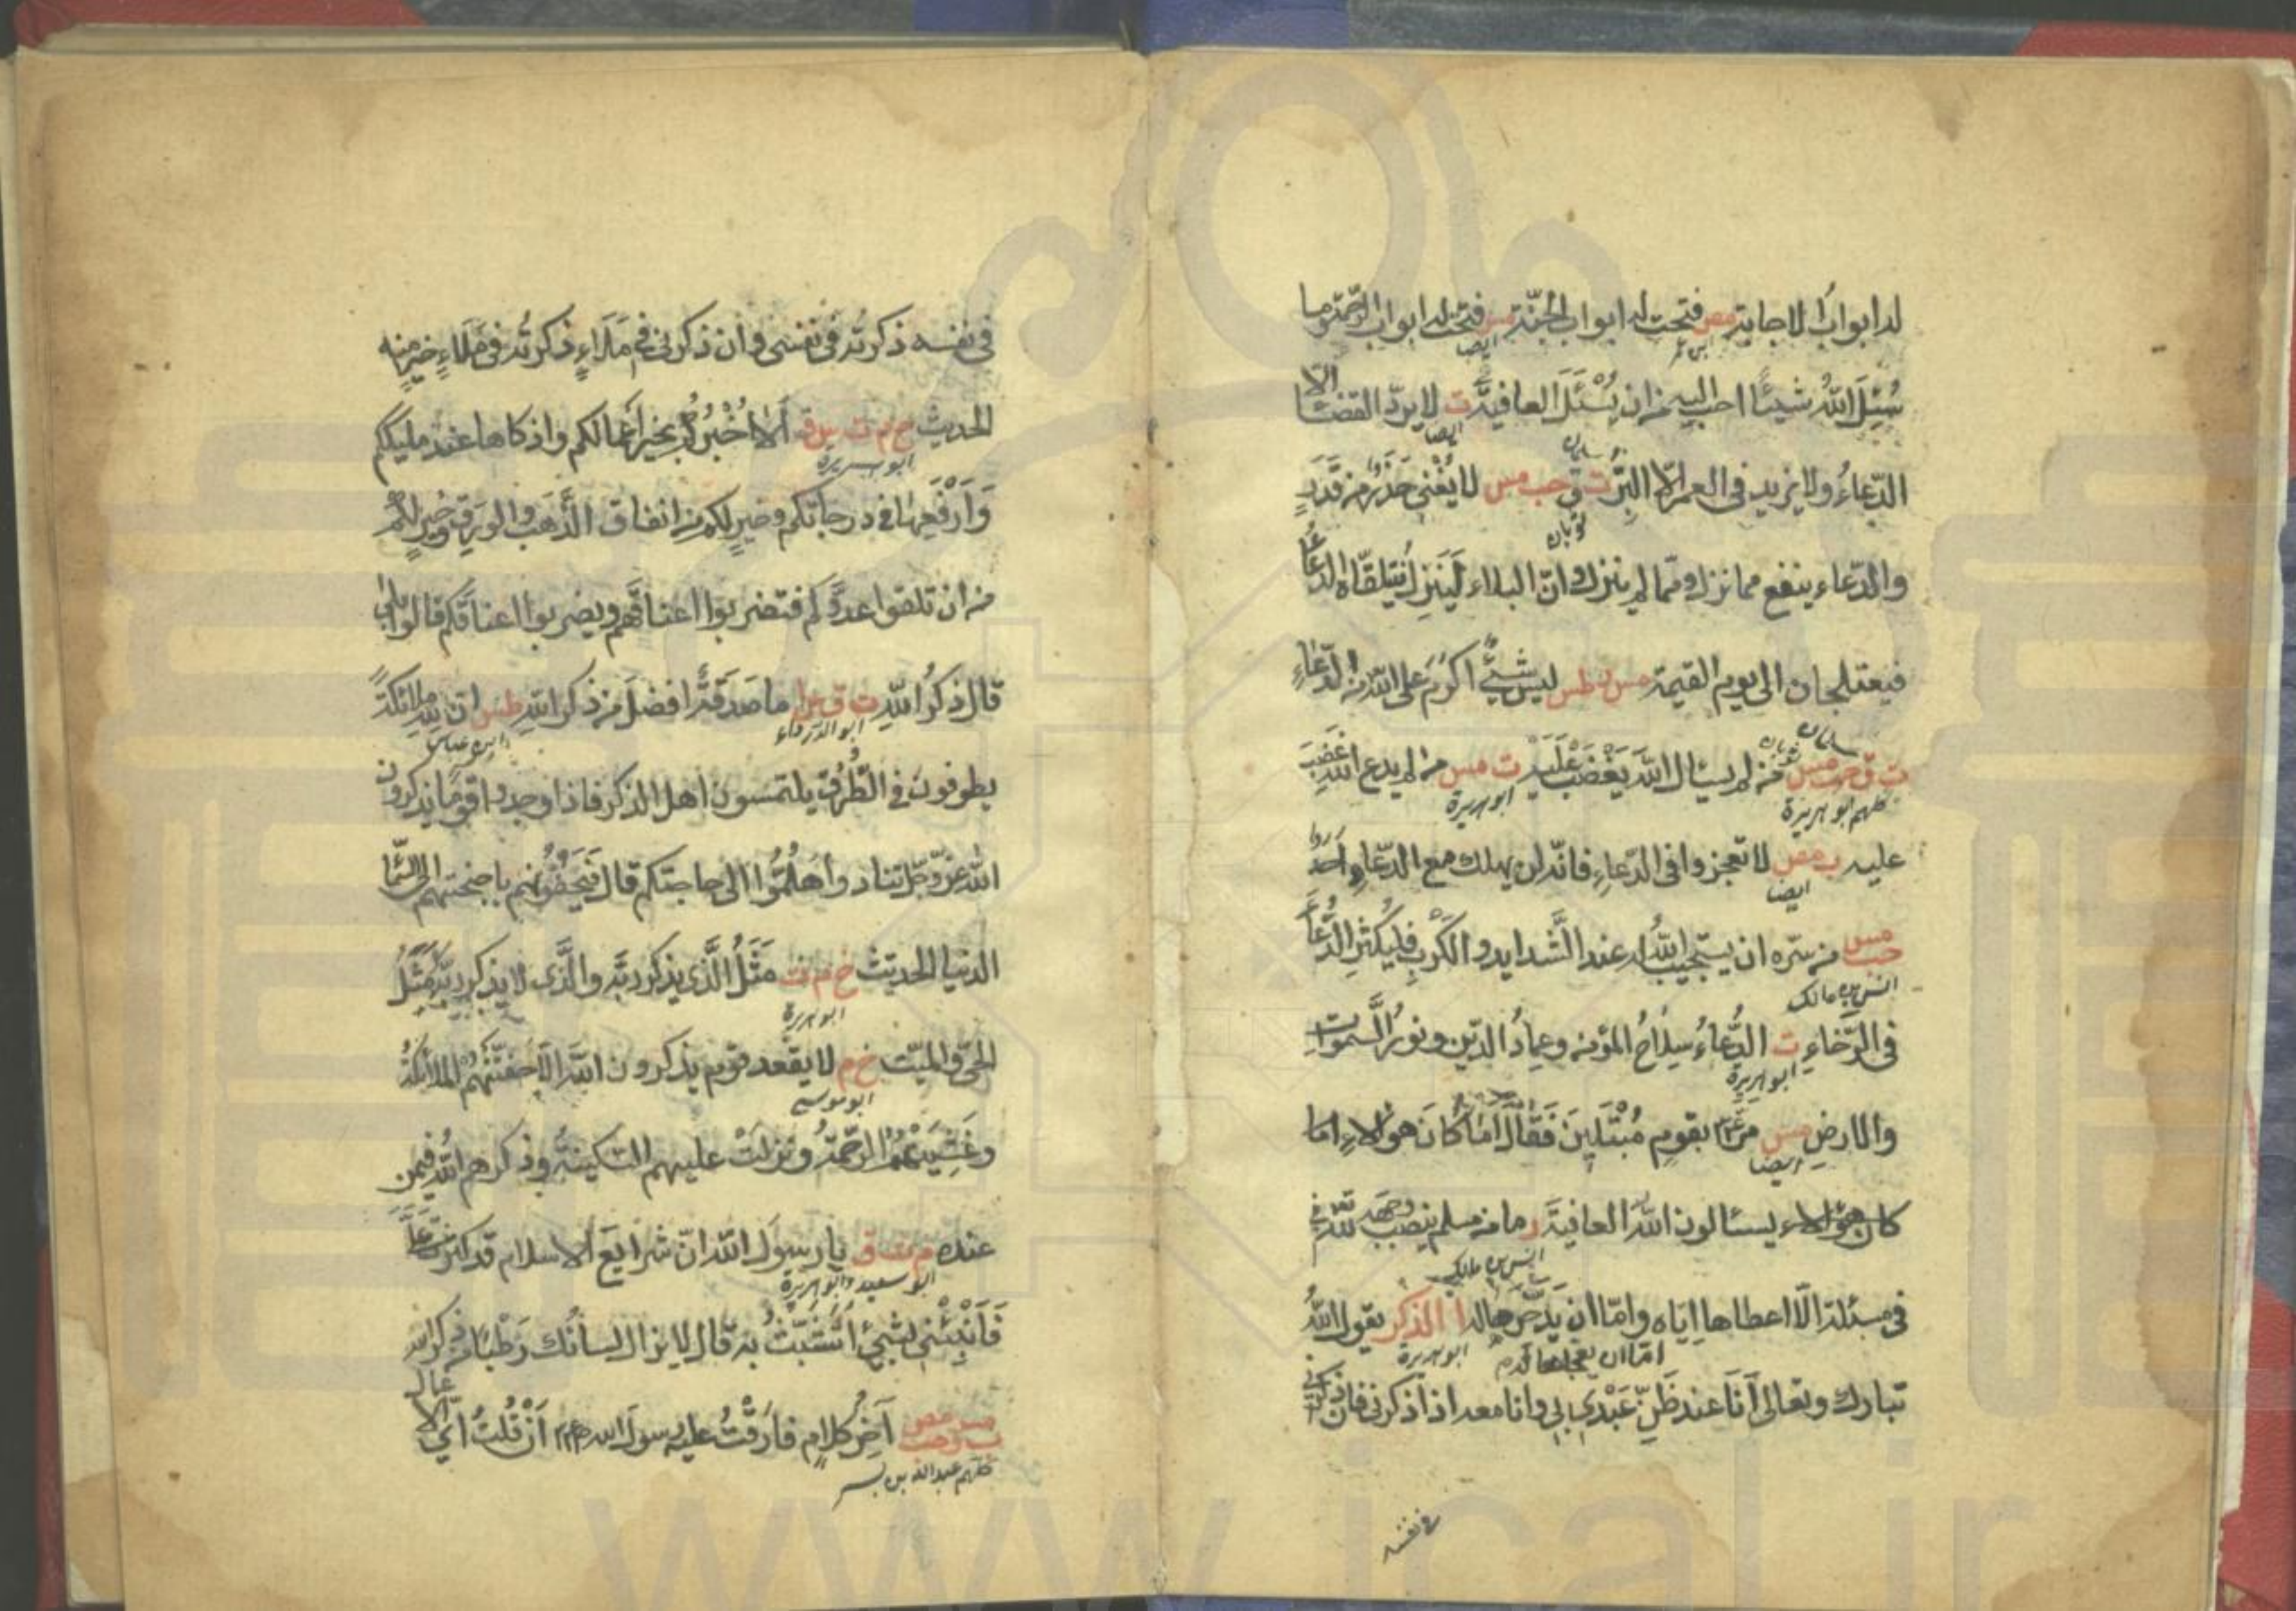 له ابوابُ الاجابة مص فتحت له ابواب الجنّة مس فتحت له ابواب الرّحمة وما
ابن عمر ايضا
سُئِلَ اللهُ شيئًا احب اليه من ان يُسْئَلَ العافيةَ ت لا يردّ القضاء الّا
ايضا سلمان
الدّعاءُ ولا يزيد في العمر الّا البِرّ ت ق حب مس لا يُغْني حَذَرٌ من قَدَرٍ
ثوبان
والدّعاء ينفع مما نزل ومّما لم ينزل وانّ البلاء لَينزل فيتلقّاه الدّعاءُ
فيعتلجان الى يوم القيمة مس ر طس ليس شيئٌ اكرمَ على الله من الدّعاءِ
ت ق حب مس من لم يسئال اللهَ يَغْضَبْ عَلَيْهِ ت مس من لم يدع اللهَ غَضِبَ
كلهم ابو هريرة ابو هريرة
عليه مص لا تعجزوا في الدّعاءِ فانّه لن يهلك مع الدّعاءِ احدٌ
ايضا
حب مس من سرّه ان يستجيب اللهُ له عند الشّدايد والكَرْبِ فليُكْثِرِ الدُّعَاءَ
انس بن مالك
في الرّخاءِ ت الدُّعاءُ سِلاحُ المؤمن وعِمادُ الدّين ونورُ السّمواتِ
ابو هريرة
والارضِ مس مَرَّ بقومٍ مُبْتَلِينَ فَقَالَ اَمَا كَانَ هؤلاءِ اما
ايضا
كان هؤلاء يسئالون اللهَ العافيةَ ر ما من مسلم ينصب وجهه لله في
انس بن مالك
في مسئلة الّا اعطاها ايّاه وامّا ان يدّخرها له ا الذكر يقول اللهُ
امّا ان يعجلها له ابو هريرة
تبارك وتعالى اَنَا عند ظَنِّ عَبْدِي بي وانا معه اذا ذكرني فان ذكرني
في نفسه
في نفسه ذكرتُه في نفسي وان ذكرني في مَلَاءٍ ذكرتُه في مَلَاءٍ خيرٍ منه
الحديث خ م ت س ق اَلا اُخْبِرُكُمْ بخير اَعمالكم وازكاها عند مليككم
ابو هريرة
وَاَرْفَعِهَا في درجاتكم وخيرٍ لكم من انفاق الذَّهَب والورِق وخيرٍ لكم
من ان تلقوا عدوّكم فتضربوا اعناقَهم ويضربوا اعناقَكم قالوا بلى
قال ذكرُ اللهِ ت ق مس ا ما صَدَقَةٌ افضلَ من ذكر اللهِ طس انّ لله ملائكةً
ابو الدرداء ابن عباس
يطوفون في الطُّرُقِ يلتمسون اهل الذكر فاذا وجدوا قومًا يذكرون
اللهَ عزّ وجلّ تنادوا هَلُمُّوا الى حاجتكم قال فَيَحُفُّونهم باجنحتهم الى السّماء
الدنيا الحديث خ م ت مَثَلُ الَّذي يذكر ربَّه والَّذي لا يذكر ربَّه مَثَلُ
ابو هريرة
الحىّ والميّت خ م لا يقعد قوم يذكرون اللهَ الّا حفتهُمُ الملائكةُ
ابو موسى
وغَشِيَتْهُمُ الرّحمةُ ونزلتْ عليهم السّكينةُ وذكرهم اللهُ فيمن
عنده م ت ق يا رسولَ الله انّ شرايعَ الاسلام قد كثرت عليَّ
ابو سعيد وابو هريرة
فَاَنْبِئْني بشيئٍ اَتَشَبَّثُ به قال لا يزال لسانُك رَطْبًا من ذكر الله
مس مص ت ق حب آخِرُ كلامٍ فارَقْتُ عليه رسولَ الله صلعم اَنْ قُلتُ اَيُّ الاعمال
كلهم عبد الله بن بسر